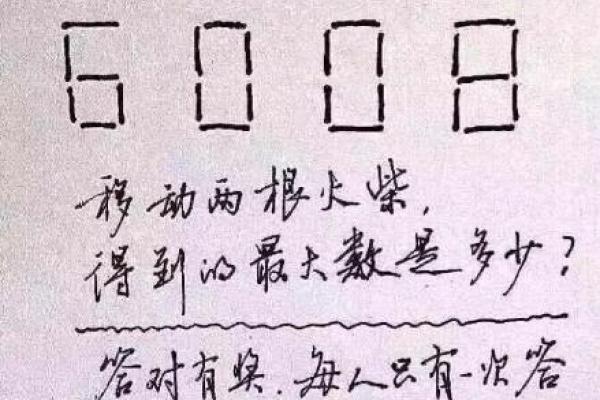 6008
移动两根火柴,
得到的最大数是多少?
答对有奖.每人只有一次答